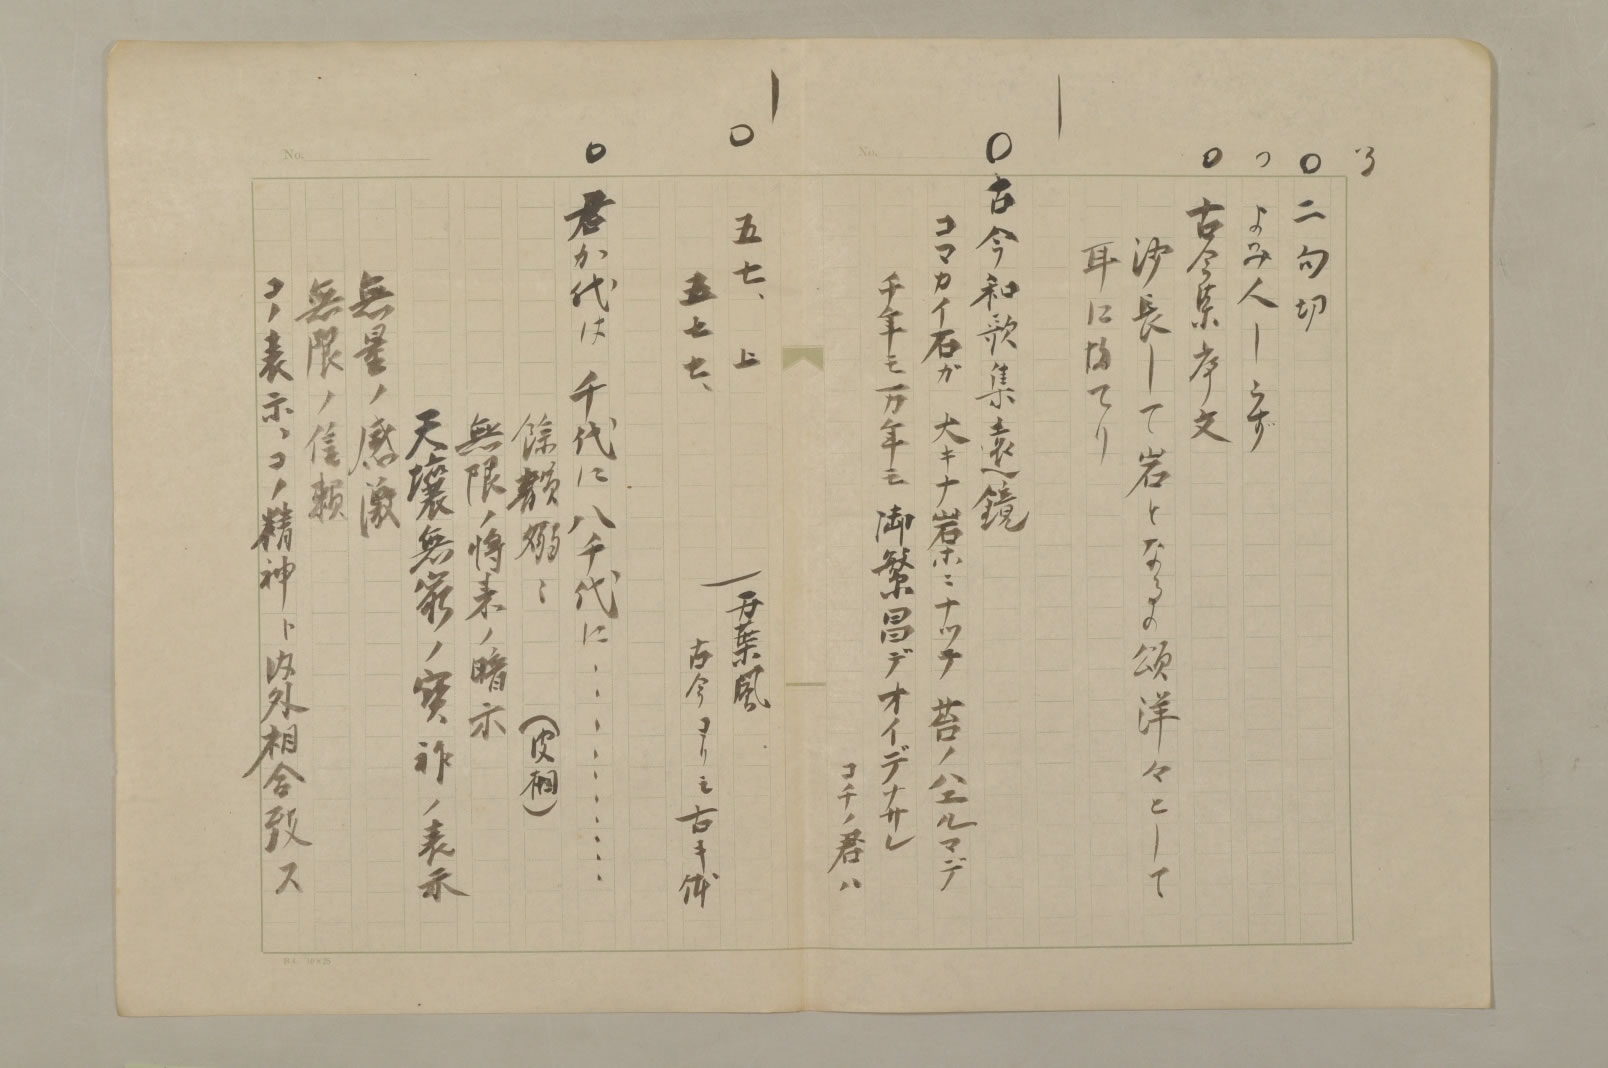 〇二句切
〇よみ人しらず
〇古今集序文
沙長して岩となるの頌洋々として
耳に満てり
〇古今和歌集遠鏡
コマカイ石ガ 大キナ岩ホニナッテ 苔ノハエルマデ
千年モ万年モ 御繁昌デオイデナサレ
コチノ君ハ
〇五七、上
五七七、
万葉風
古今ヨリモ古キ体
〇君か代は 千代に八千代に・・・・・・・・・
餘韻嫋〻
無限ノ将来ノ暗示
天壤無窮ノ寶祚ノ表示
無量ノ感激
無限ノ信頼
コノ表示、コノ精神ト内外相合致ス
No.
No.